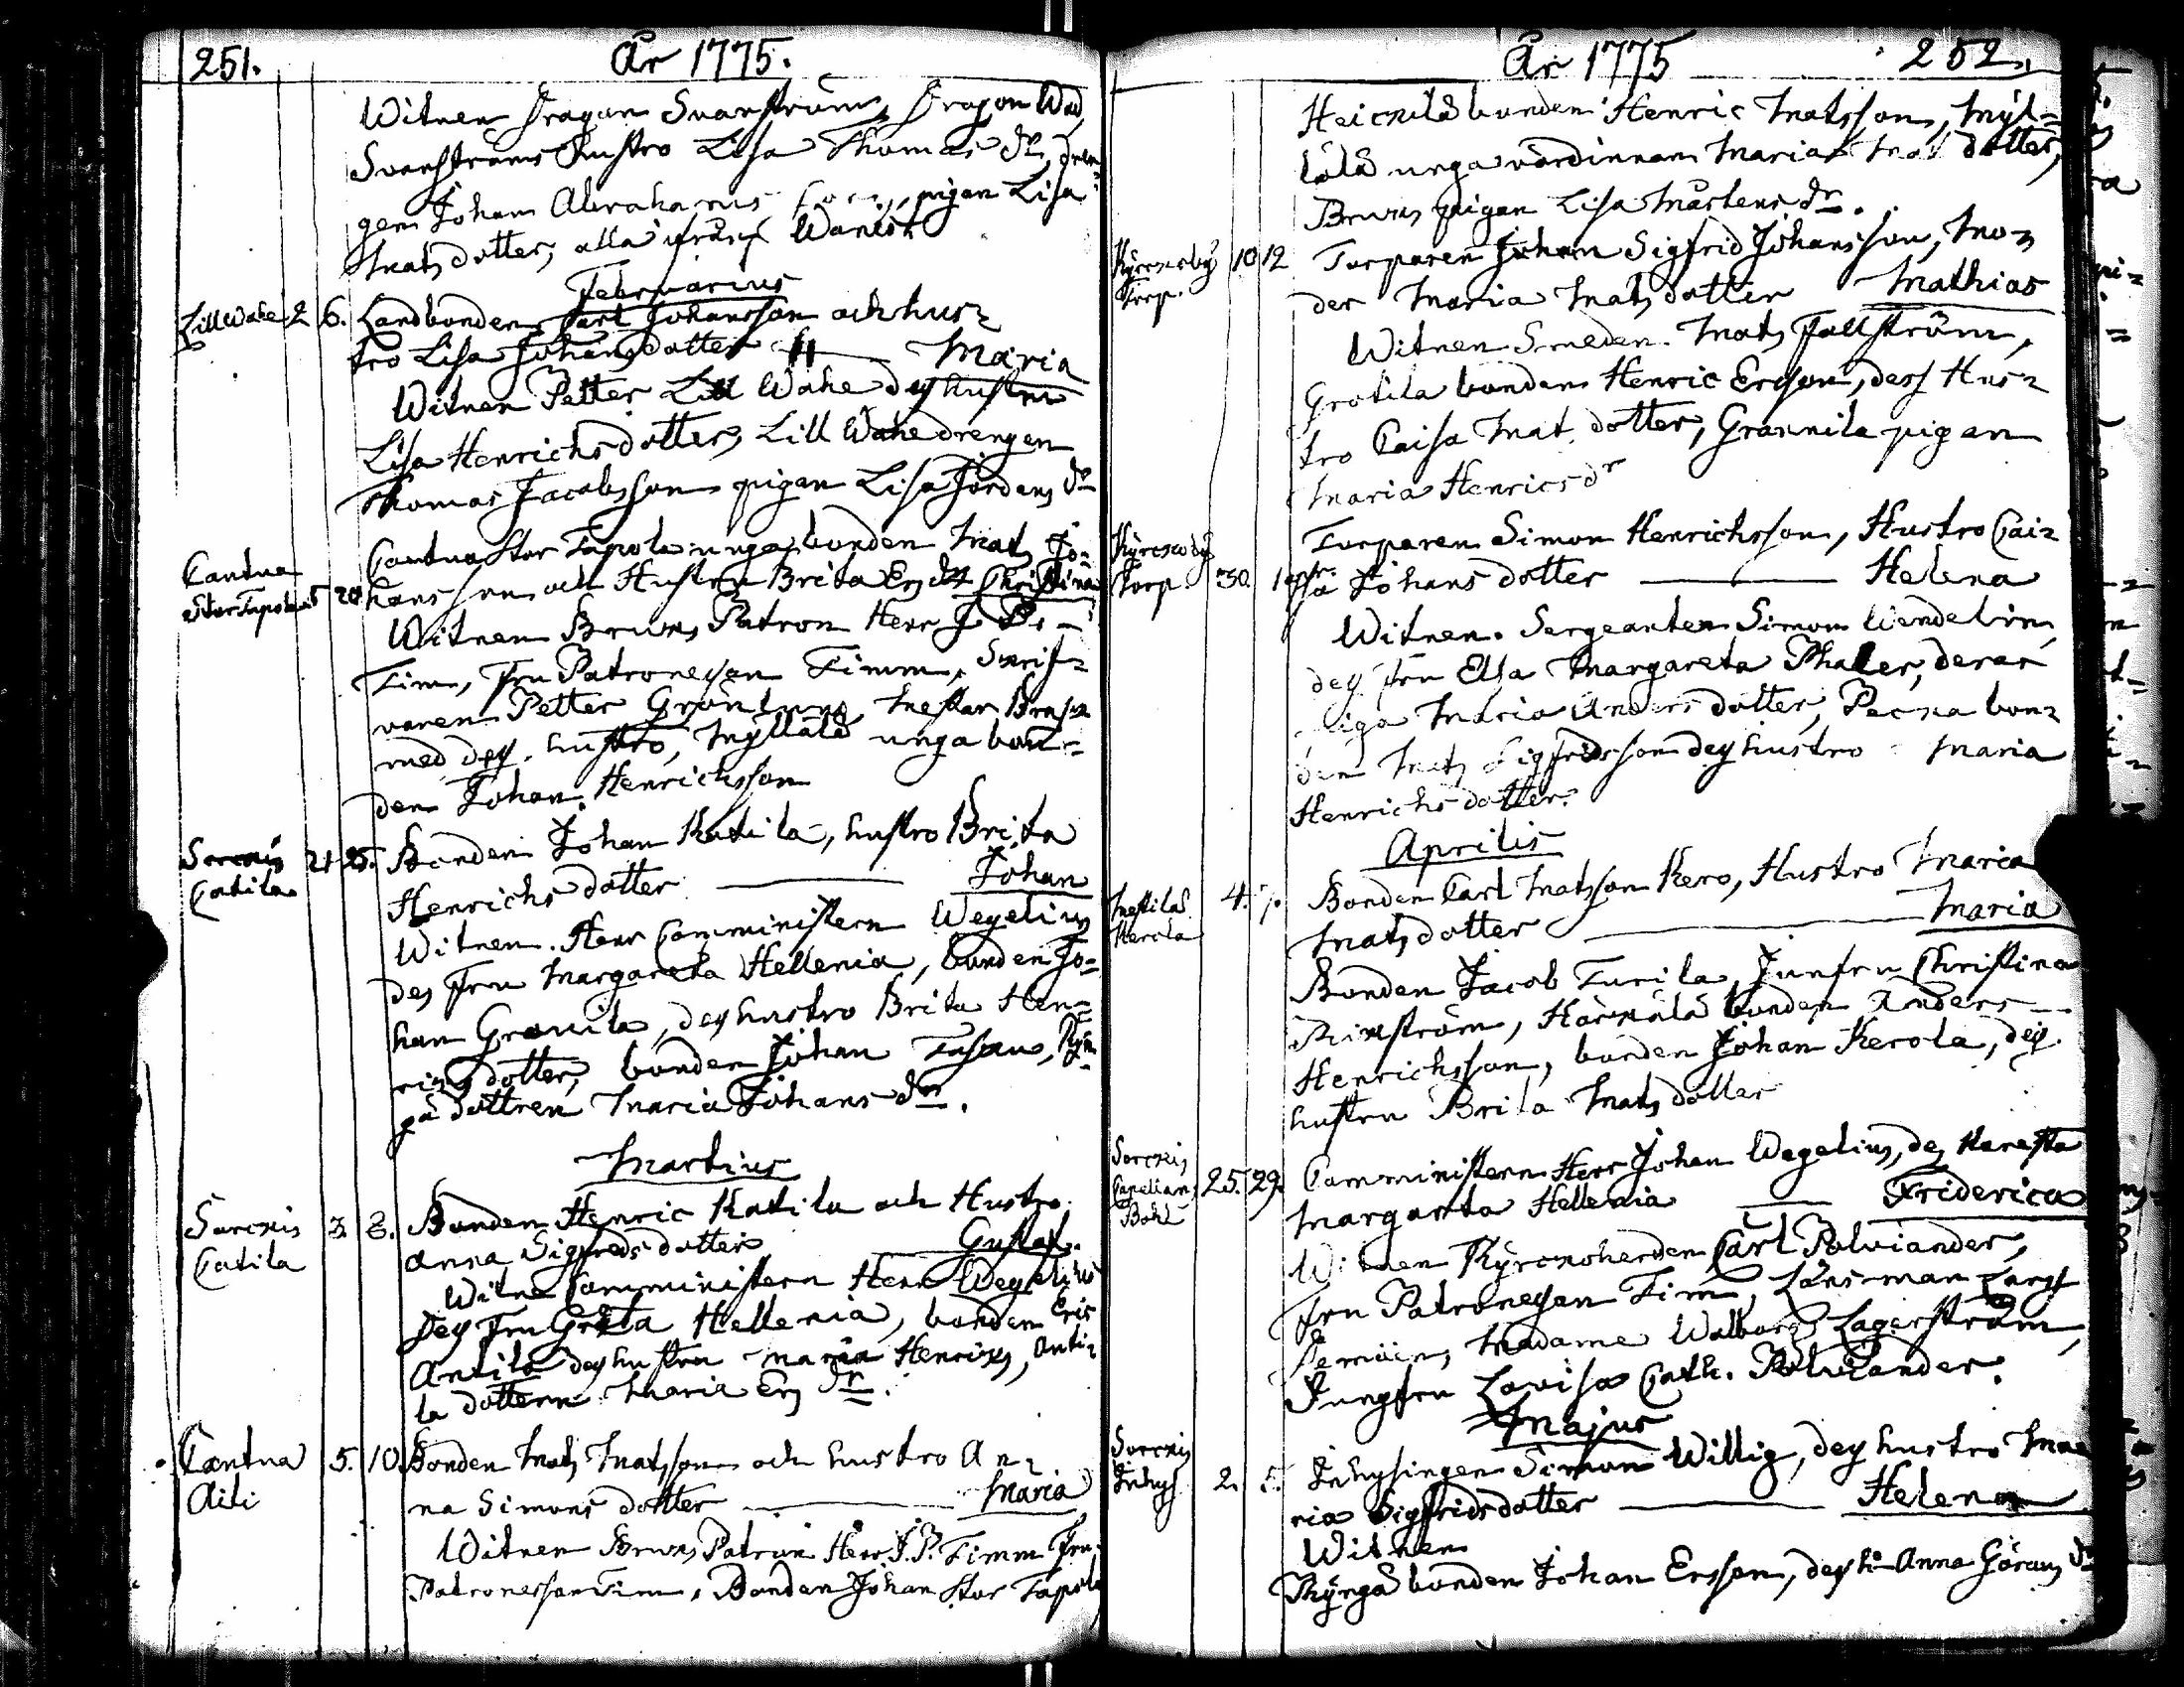 251.
År 1775.
Witnen Dragon Svanström, Dragon
Svanströms Hustro Lisa Thomas dr, drän-
gen Johan Abrahams son, pigan Lisa
Matsdotter, alla ifrån
Februarius
Lill Wahe 2 6. Landbonden Carl Johansson och hus-
tro Lisa Johansdotter Maria
Witnen Petter Lill Wahe dess hustru
Lisa Henrichsdotter, Lill Wahe drengen
Thomas Jacobsson pigan Lisa Jördens dr
Cantua Stor Tapola unga bonden Mats Jo-
Cantua
Stor Tapola 15 20 hansson och Hustru Brita Ers dr Christina
Witnen Bruns Patron Herr J P.
Timm, Fru Patronessan Timm, Skrif-
varen Petter Grönlund, Mestar
med dess hustro, Myllälä unga bon-
den Johan Henrichsson
Sorckis 21 25. Bonden Johan Katila, hustro Brita
Catila
Henrichsdotter Johan
Witnen. Herr Comministern Wegelius
des Fru Margareta Hellenia, bonden Jo-
han Granila, dess hustro Brita Hen-
ricsdotter, bonden Johan
gä dottren Maria Johans dr.
Martius
Sorckis 3. 8. Bonden Henric Katila och Hustro
Catila
Anna Sigfredsdotter Gustaf.
Witne Comministern Herr Wegelius
dess Fru Greta Hellenia, bonden Eric
Antila dess hustru Maria Henrics, Anti-
la dottern Maria Ers dr.
Cantua 5. 10. Bonden Mats Matsson och hustro An-
Aili
na Simons dotter Maria
Witnen Bruns Patron Herr J. P. Timm Fru
Patronessan Timm, Bonden Johan Stor Tapola
År 1775 252.
bonden Henric Matsson, Myl-
lälä unga värdinnan Maria Mats dotter,
Bruns pigan Lisa Mårtens dr.
Kyrckoby 10 12 Torparen Johan Sigfrid Johansson, Mo-
Torp.
der Maria Mats dotter Mathias
Witnen Smeden Mats Fallström,
Grotila bonden Henric Ersson, dess Hus-
tro Caisa Mats dotter, Grannila pigan
Maria Henrics dr
Torparen Simon Henrichsson, Hustro Cai-
Kyrckoby
Torp. 30. sa Johans dotter Helena
Witnen. Sergeanten Simon Wendelin,
dess fru Elsa Margareta Thaler, deras
piga Maria Anders dotter, Pecka bon-
den Mats Sigfridsson dess hustro Maria
Henrichs dotter.
Aprilis
4. 7. Bonden Carl Matsson Kero, Hustro Maria
Kerola
Matsdotter Maria
Bonden Jacob Turila, Junfru Christina
bonden Anders
Henrichsson, bonden Johan Kerola, dess
hustru Brita Mats dotter
Sorckis
Capellans 25. 29. Comministern Herr Johan Wegelius, des Käresta
Bohl
Margareta Hellenia Friderica
Witnen Kyrckoherden Carl Polviander,
Fru Patronessan Timm, Länsman
Madame Walborg Lagerström,
Jungfru Lovisa Cath. Polviander.
Majus
Sorckis
Inhys. 2. 5. Inhysingen Simon Willig, dess hustro Ma-
ria Sigfridsdotter Helena
Witnen
bonden Johan Ersson, dess h. Anna Görans dr